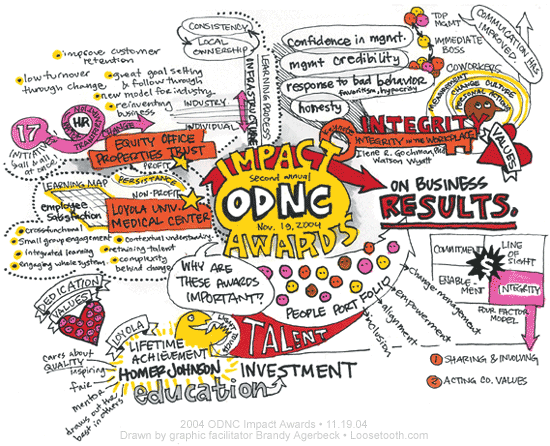 CONSISTENCY
LOCAL
OWNERSHIP
INFRASTRUCTURE
LEARNING PROCESS
INDUSTRY
INDIVIDUAL
improve customer
retention
low turnover
through change
great goal setting
& follow through
new model for industry
reinventing
business
17
INITIATIVES
ball ball
at once
HR
CHANGE
EQUITY OFFICE
PROPERTIES TRUST
PROFIT
NON-PROFIT
LEARNING MAP
PERSISTANCE
employee
satisfaction
LOYOLA UNIV.
MEDICAL CENTER
crossfunctional
Small group engagement
integrated learning
engaging whole system
contextual understanding
retaining talent
complexity
behind change
IMPACT
second annual
ODNC
NOV. 19, 2004
AWARDS
confidence in mgmt.
mgmt credibility
response to bad behavior
favoritism, hypocrisy
honesty
TOP
MGMT
IMMEDIATE
BOSS
COWORKERS
COMMUNICATION HAS
IMPROVED
MANAGEMENT
CHANGE CULTURE
PERSONAL ACTIONS
keynote
INTEGRITY
INTEGRITY in the WORKPLACE
Ilene R. Gochman, PhD
Watson Wyatt
VALUES
ON BUSINESS
RESULTS.
COMMITMENT
LINE
OF
SIGHT
$
ENABLE-
MENT
INTEGRITY
FOUR FACTOR
MODEL
1 SHARING & INVOLVING
2 ACTING CO. VALUES
WHY ARE
THESE AWARDS
IMPORTANT?
PEOPLE PORTFOLIO
change management
empowerment
alignment
inclusion
TALENT
INVESTMENT
DEDICATION
VALUES
LOYOLA
LIFETIME
ACHIEVEMENT
HOMER JOHNSON
education
cares about
QUALITY
inspiring
fair
mentor
draws out the
best in others
2004 ODNC Impact Awards • 11.19.04
Drawn by graphic facilitator Brandy Agerbeck • Loosetooth.com